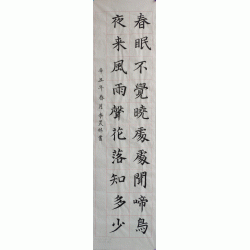 春眠不覺曉處處聞啼鳥
夜来風雨聲花落知多少